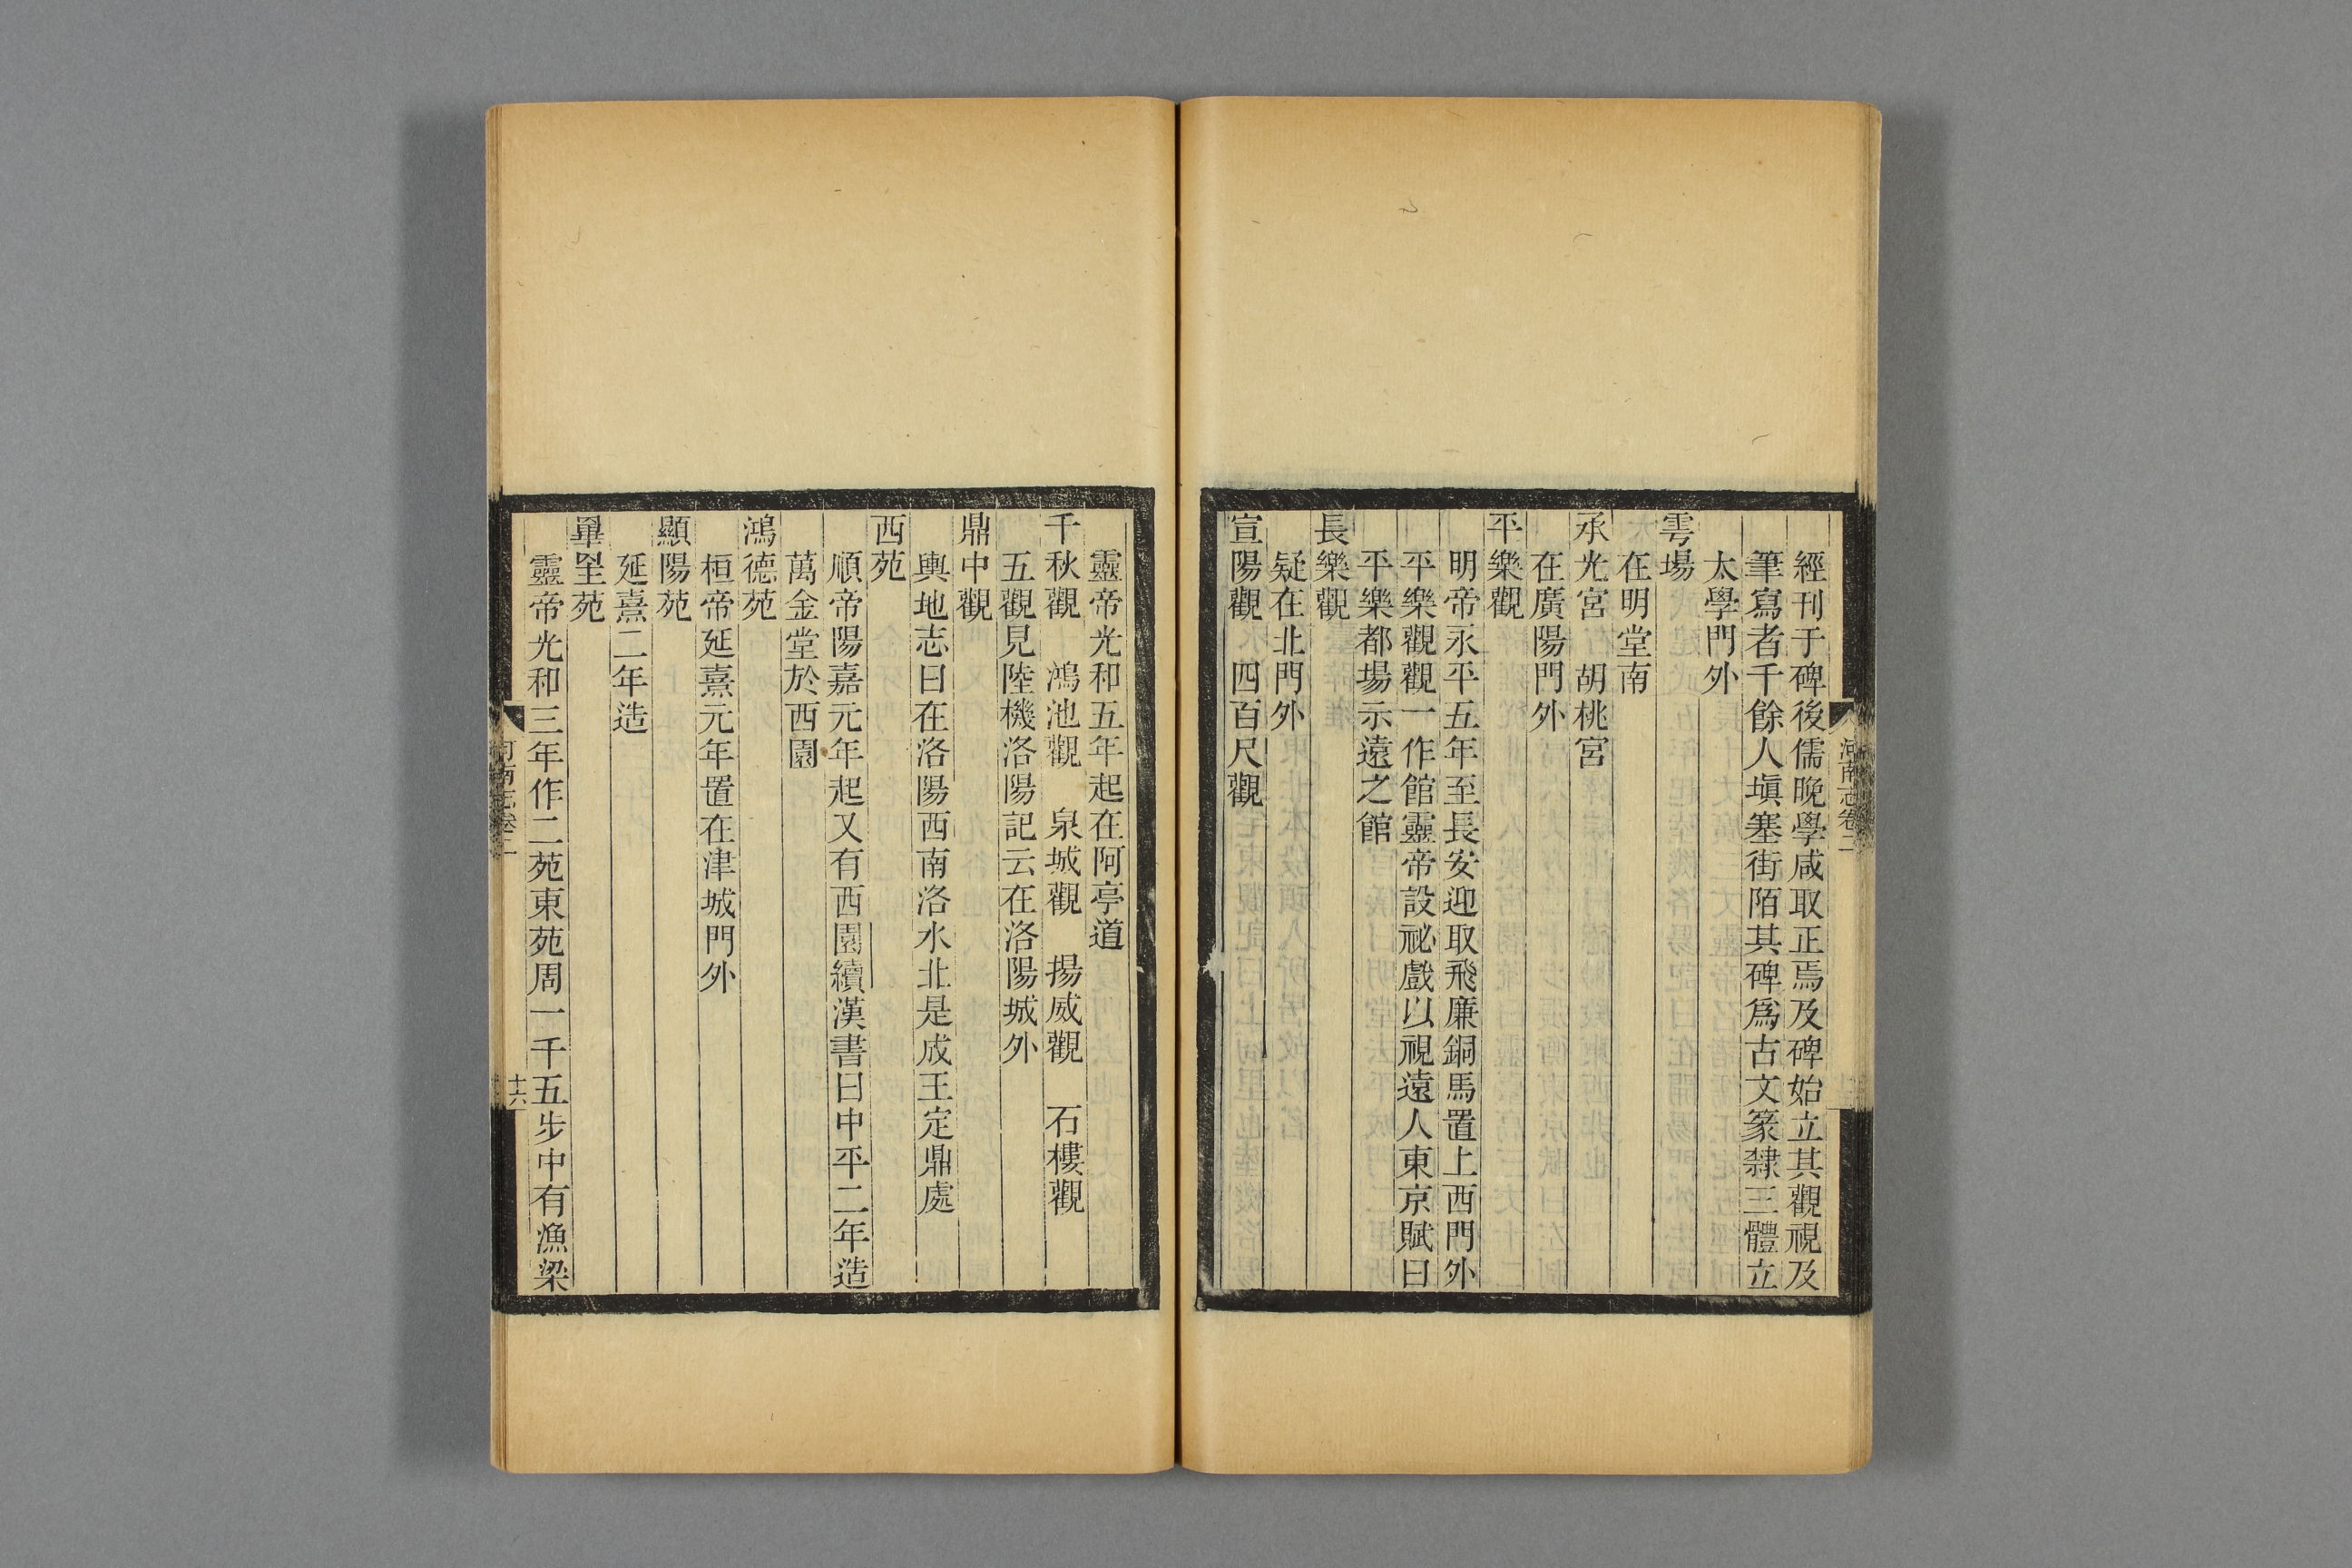 經刊于碑後儒晚學咸取正焉及碑始立其觀視及
筆寫者千餘人塡塞街陌其碑爲古文篆隸三體立
太學門外
雩場
在明堂南
承光宮　胡桃宮
在廣陽門外
平樂觀
明帝永平五年至長安迎取飛廉銅馬置上西門外
平樂觀觀一作館靈帝設祕戲以視遠人東京賦曰
平樂都場示遠之館
長樂觀
疑在北門外
宣陽觀　四百尺觀
靈帝光和五年起在阿亭道
千秋觀　鴻池觀　泉城觀　揚威觀　石樓觀
五觀見陸機洛陽記云在洛陽城外
鼎中觀
輿地志曰在洛陽西南洛水北是成王定鼎處
西苑
順帝陽嘉元年起又有西園續漢書曰中平二年造
萬金堂於西園
鴻德苑
桓帝延熹元年置在津城門外
顯陽苑
延熹二年造
罼圭苑
靈帝光和三年作二苑東苑周一千五步中有漁梁
河南志卷二
十六